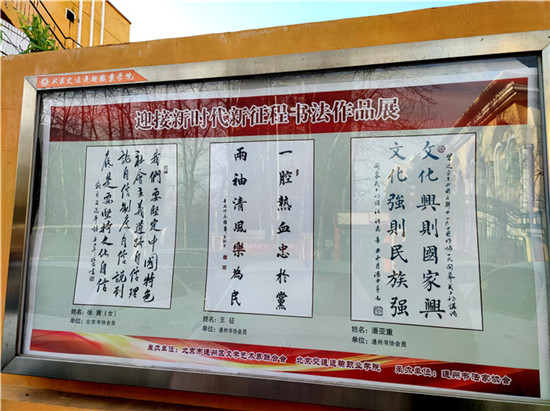 北京交通运输职业学院
迎接新时代新征程书法作品展
我們要堅定中國特色
社會主義道路自信理
論自信制度自信說到
底是要堅持文化自信
姓名：徐（女）
单位：北京书协会员
一腔熱血忠於黨
兩袖清風樂為民
姓名：王 征
单位：通州书协会员
文化興則國家興
文化強則民族強
姓名：潘亚重
单位：通州书协会员
主办单位：北京市通州区文学艺术界联合会 北京交通运输职业学院 承办单位：通州书法家协会